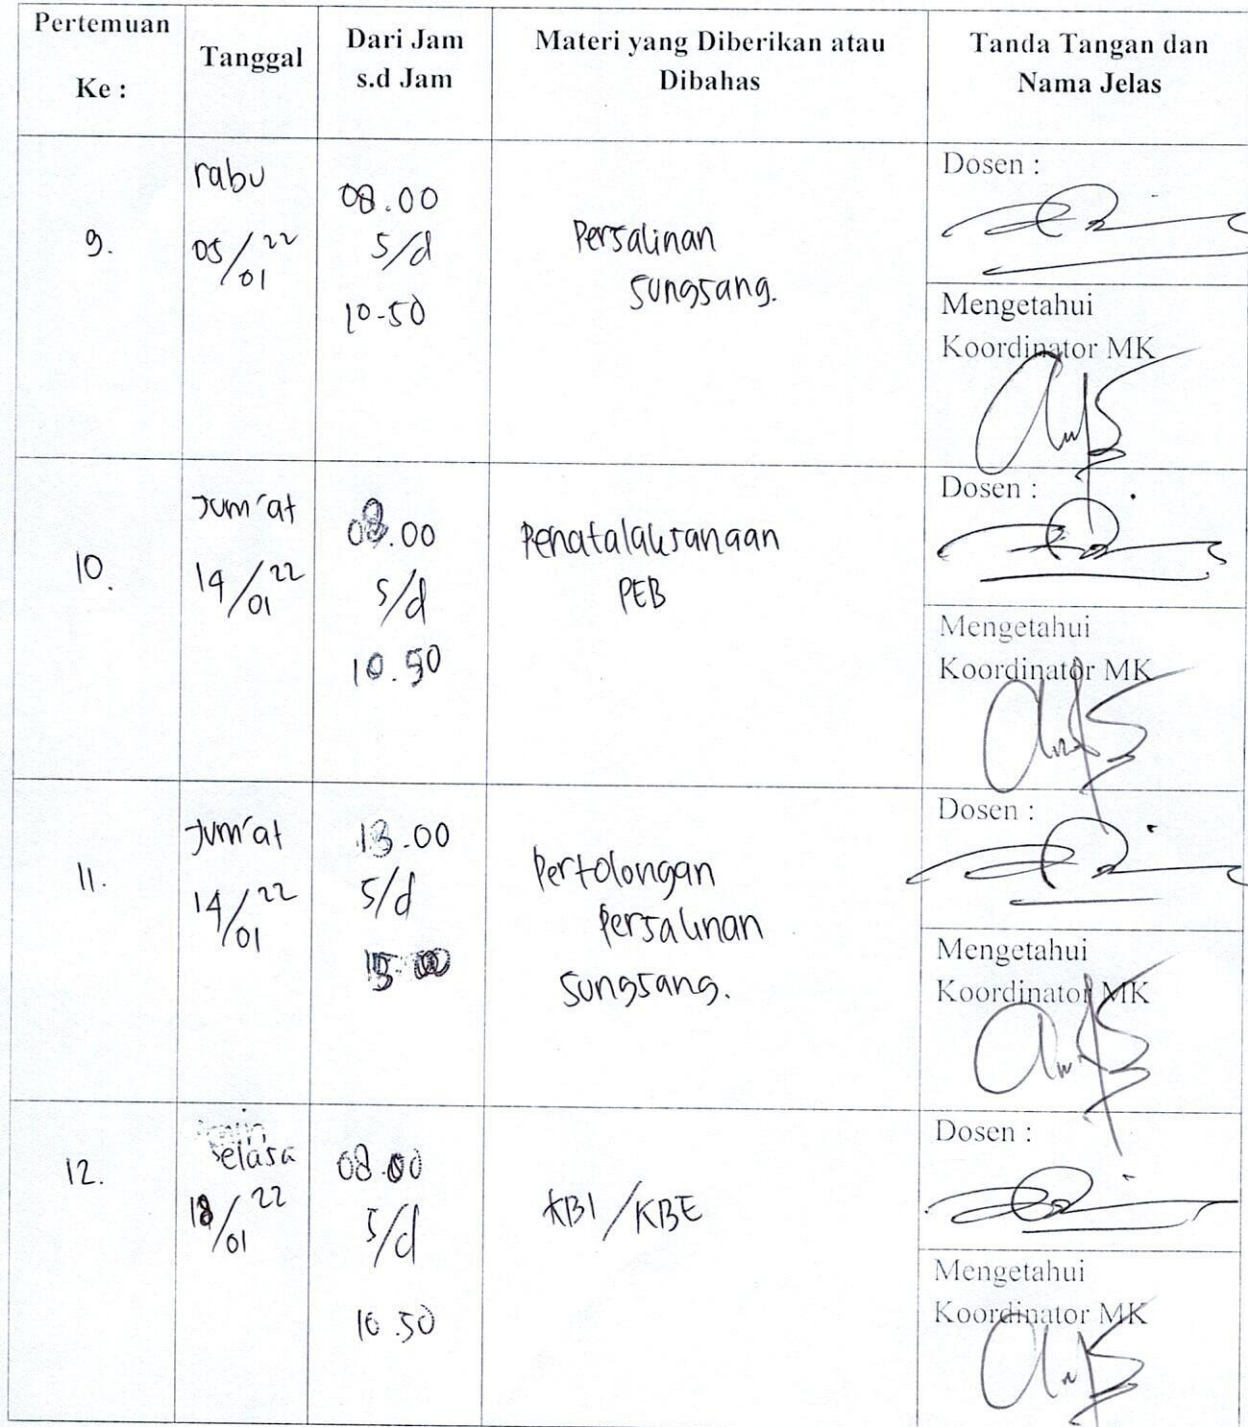 Pertemuan
Ke :
Tanggal
Dari Jam
s.d Jam
Materi yang Diberikan atau
Dibahas
Tanda Tangan dan
Nama Jelas
9.
rabu
05/01 22
08.00
s/d
10-50
Persalinan
sungsang.
Dosen :
Mengetahui
Koordinator MK
10.
Jum'at
14/01 22
08.00
s/d
10.50
Penatalaksanaan
PEB
Dosen :
Mengetahui
Koordinator MK
11.
Jum'at
14/01 22
13.00
s/d
Pertolongan
Persalinan
Sungsang.
Dosen :
Mengetahui
Koordinator MK
12.
selasa
18/01 22
08.00
s/d
10.50
KBI/KBE
Dosen :
Mengetahui
Koordinator MK